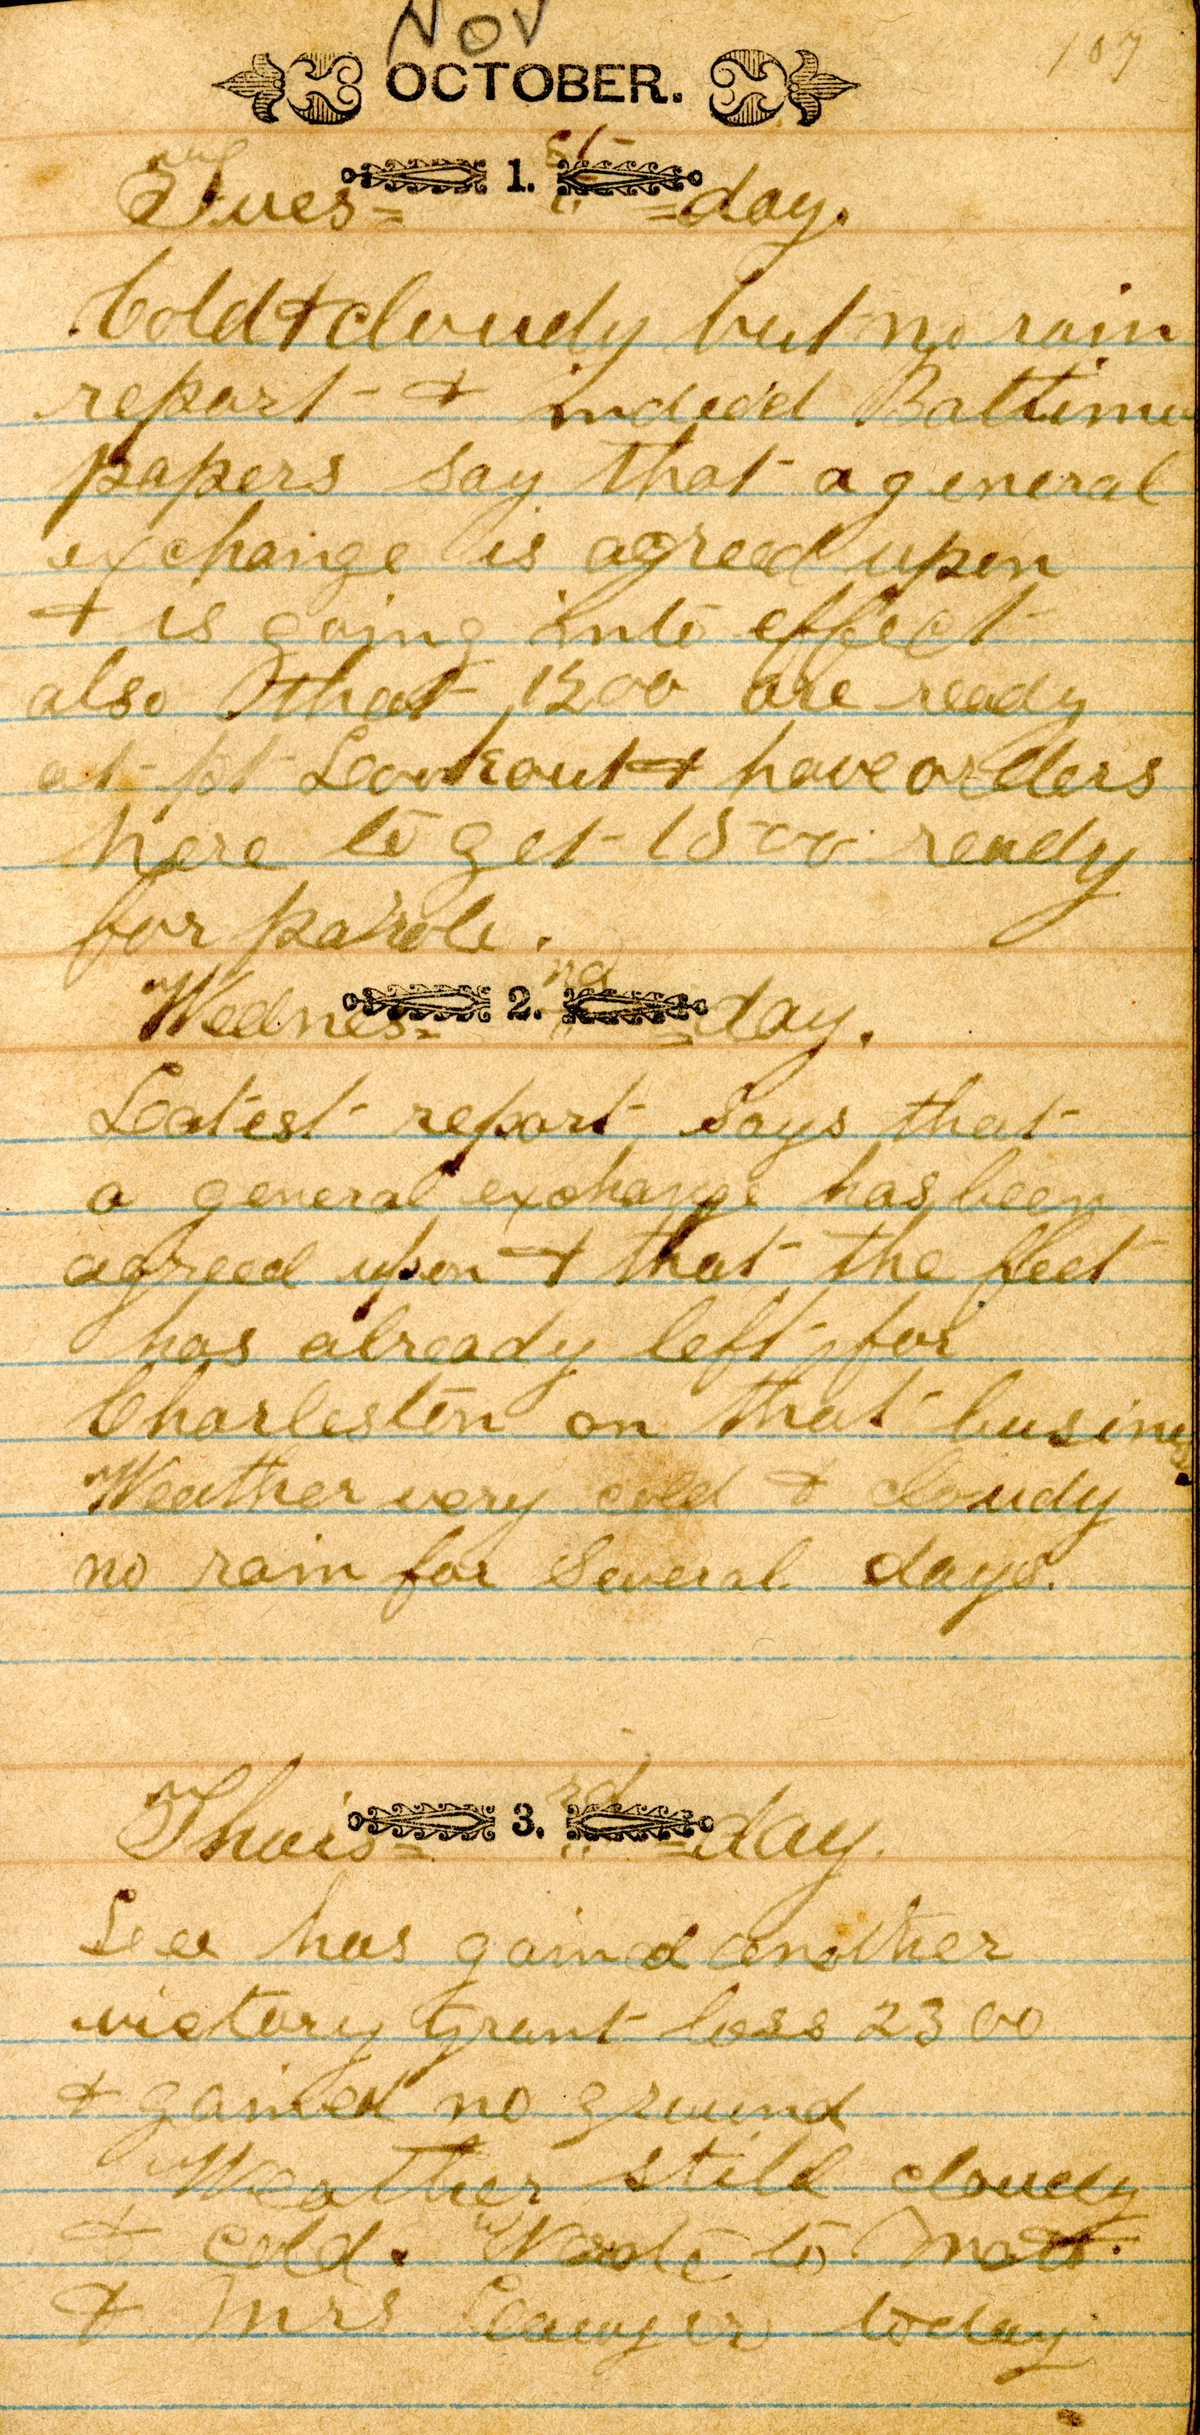 Nov
107
OCTOBER.
Tues= 1. st =day.
Cold & cloudy but no rain
report & indeed Baltimo
papers say that a general
exchange is agreed upon
& is going into effect
also that 1500 are ready
at pt Lookout & have orders
here to get 1500 ready
for parole.
Wednes= 2. nd =day.
Latest report says that
a general exchange has been
agreed upon & that the fleet
has already left for
Charleston on that business
Weather very cold & cloudy
no rain for several days.
Thurs= 3. rd =day.
Lee has gained another
victory Grant loss 2300
& gained no ground
Weather still cloudy
& cold. Wrote to
& Mrs Sawyer today